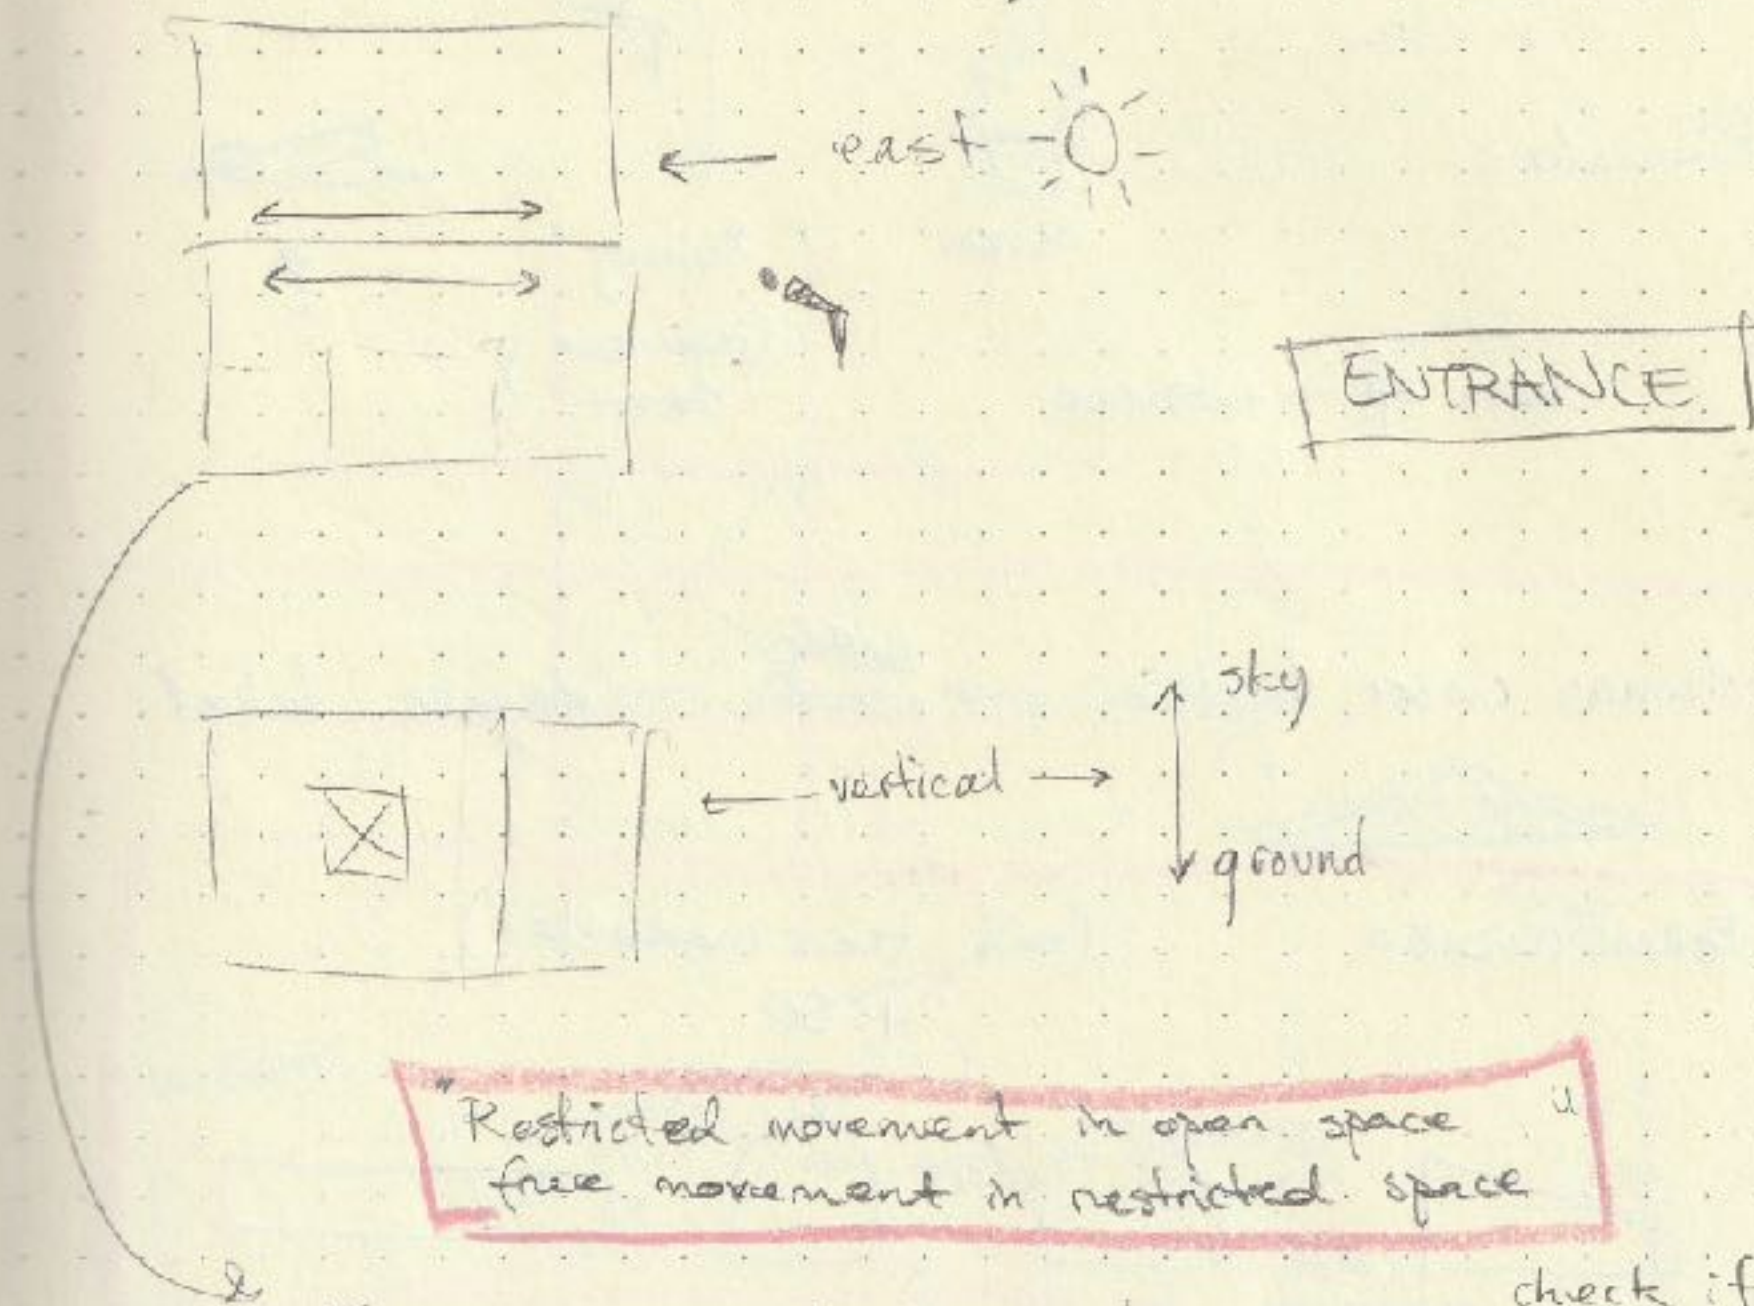 east
ENTRANCE
sky
vertical
ground
"Restricted movement in open space"
free movement in restricted space
check if